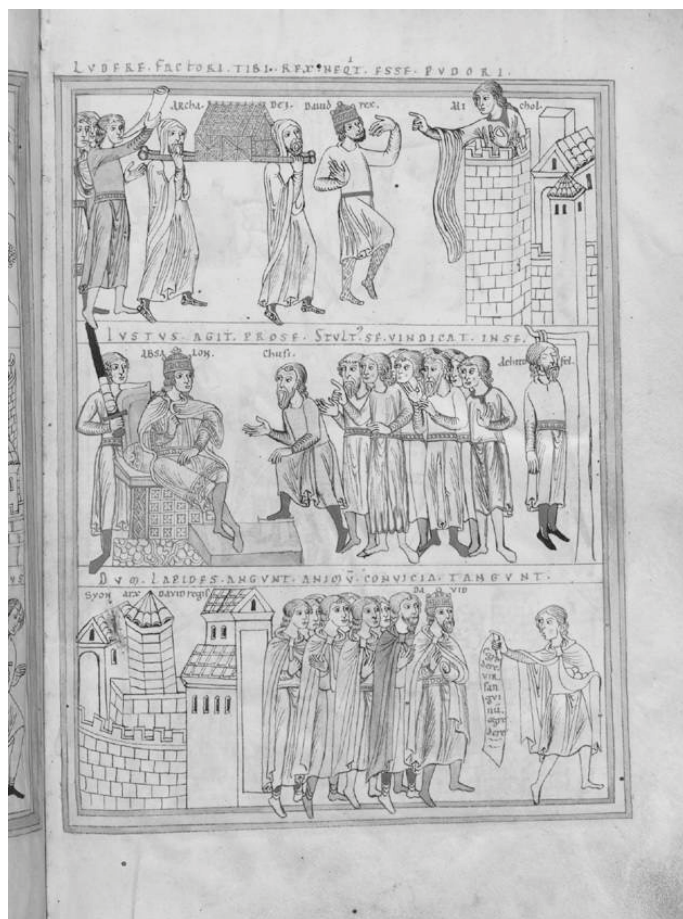 LVDERE. FACTORI. TIBI. REX. NEQ̇T. ESSE. PVDORI.
ARCHA. DEI. DAVID rex. MI chol.
IVSTVS. AGIT. PROSE. STVLT' SE. VINDICAT. INSE.
ABSA LON. Chusi. Achito fel.
DVM. LAPIDES. ANGVNT. ANIMŪ. CONVICIA. TANGVNT.
Syon arx DAVID regis DA VID
dere
vir
san
gui
nū.
egre
dere